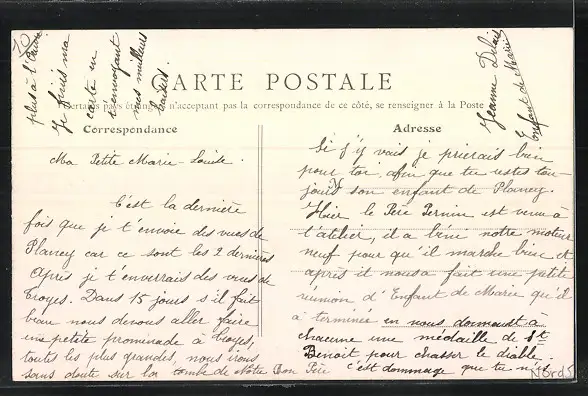 CARTE POSTALE
Certains pays étrangers n'acceptant pas la correspondance de ce côté, se renseigner à la Poste
Correspondance
Ma Petite Marie-Louise.
C'est la dernière
fois que je t'envoie des vues de
Plancy car ce sont les 2 dernières
Après je t'enverrais des vues de
Troyes. Dans 15 jours s'il fait
beau nous devons aller faire
une petite promenade à Troyes,
toutes les plus grandes, nous irons
sans doute sur la tombe de Notre Bon Père
Adresse
Si j'y vais je prierais bien
pour toi, afin que tu restes tou-
jours son enfant de Plancy.
Hier le Père Perrin est venu à
l'atelier, il a béni notre moteur
neuf pour qu'il marche bien et
après il nous a fait une petite
réunion d'Enfant de Marie qu'il
a terminée en nous donnant à
chacune une médaille de St
Benoit pour chasser le diable.
c'est dommage que tu n'es
plus à l'
Je finis ma
carte en
t'envoyant
mes meilleurs
baisers
Jeanne
Enfant de Marie
Nord